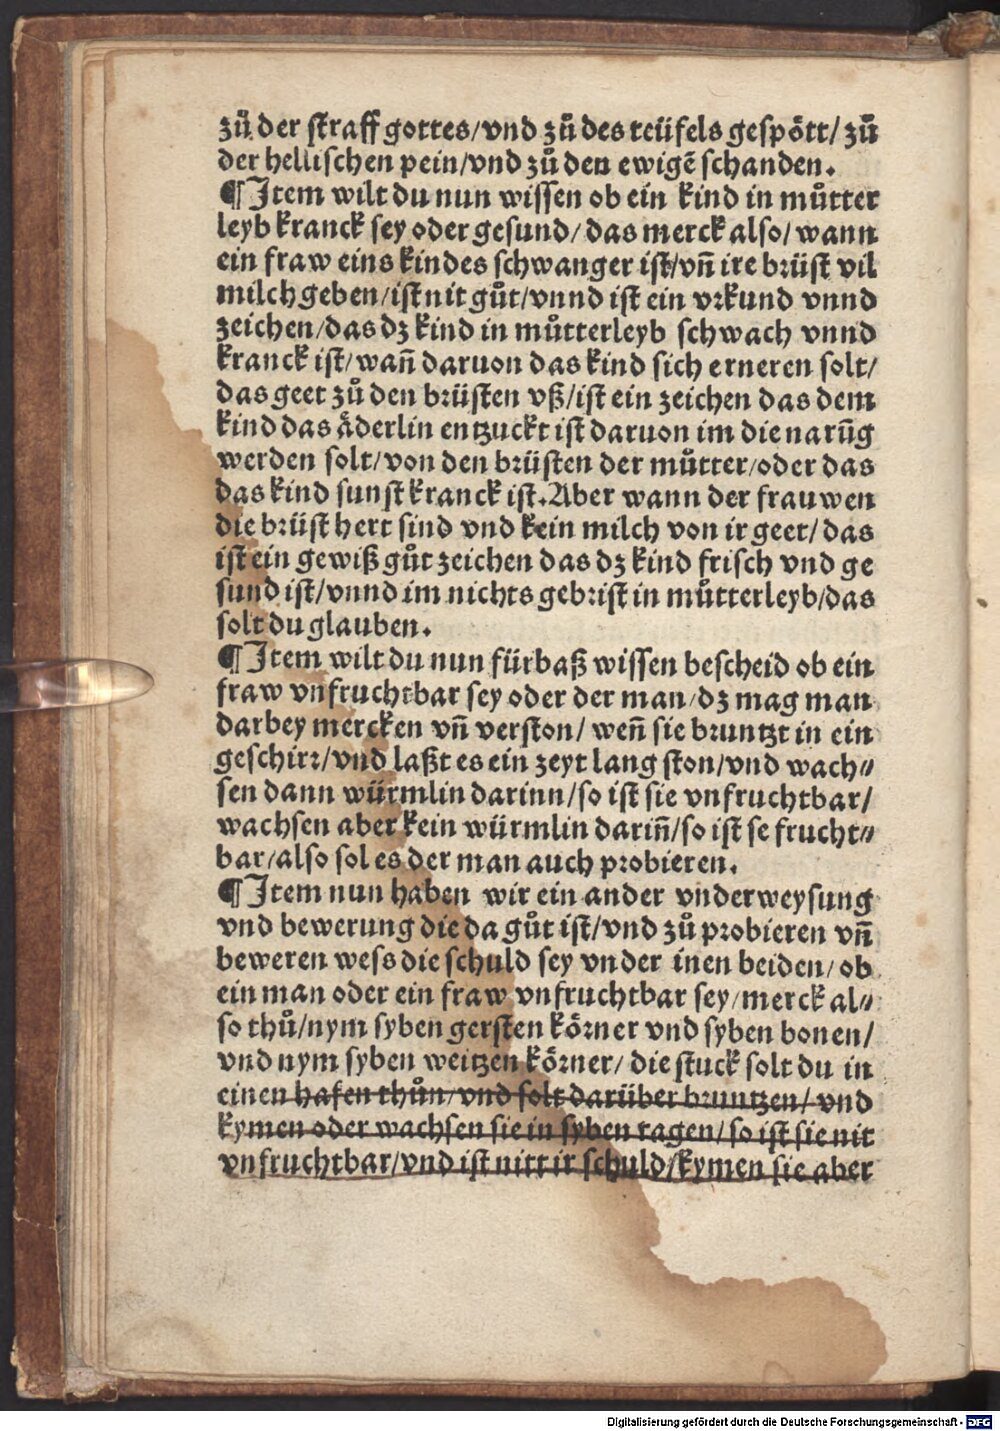 zů der straff gottes/vnd zů des teüfels gespött/ zů
der hellischen pein/vnd zů den ewigẽ schanden.
¶Item wilt du nun wissen ob ein kind in můtter
leyb kranck sey oder gesund/ das merck also/ wann
ein fraw eins kindes schwanger ist/vñ ire brüst vil
milch geben/ist nit gůt/vnnd ist ein vrkund vnnd
zeichen/das dz kind in můtterleyb schwach vnnd
kranck ist/wañ daruon das kind sich erneren solt/
das geet zů den brüsten vß/ist ein zeichen das dem
kind das äderlin entzuckt ist daruon im die narũg
werden solt/von den brüsten der můtter/oder das
das kind sunst kranck ist. Aber wann der frauwen
die brüst hert sind vnd kein milch von ir geet/das
ist ein gewiß gůt zeichen das dz kind frisch vnd ge
sund ist/vnnd im nichts gebrist in můtterleyb/das
solt du glauben.
¶Item wilt du nun fürbaß wissen bescheid ob ein
fraw vnfruchtbar sey oder der man/dz mag man
darbey mercken vñ verston/ weñ sie bruntzt in ein
geschirr/vnd laßt es ein zeyt lang ston/vnd wach⸗
sen dann würmlin darinn/so ist sie vnfruchtbar/
wachsen aber kein würmlin dariñ/so ist se frucht⸗
bar/also sol es der man auch probieren.
¶Item nun haben wir ein ander vnderweysung
vnd bewerung die da gůt ist/vnd zů probieren vñ
beweren wess die schuld sey vnder inen beiden/ ob
ein man oder ein fraw vnfruchtbar sey/merck al⸗
so thů/nym syben gersten körner vnd syben bonen/
vnd nym syben weitzen körner/ die stuck solt du in
einen hafen thůn/vnd solt darüber bruntzen/ vnd
kymen oder wachsen sie in syben tagen/so ist sie nit
vnfruchtbar/vnd ist nitt ir schuld/kymen sie aber
Digitalisierung gefördert durch die Deutsche Forschungsgemeinschaft - DFG